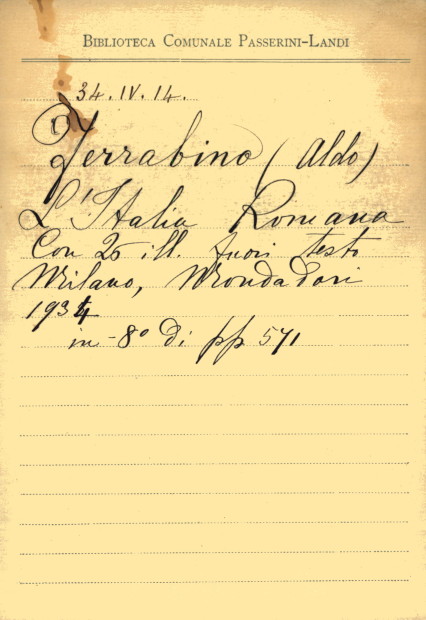 BIBLIOTECA COMUNALE PASSERINI-LANDI
34.IV.14.
Ferrabino (Aldo)
L'Italia Romana
Con 26 ill. fuori testo
Milano, Mondadori
1934
in-8° di pp 571